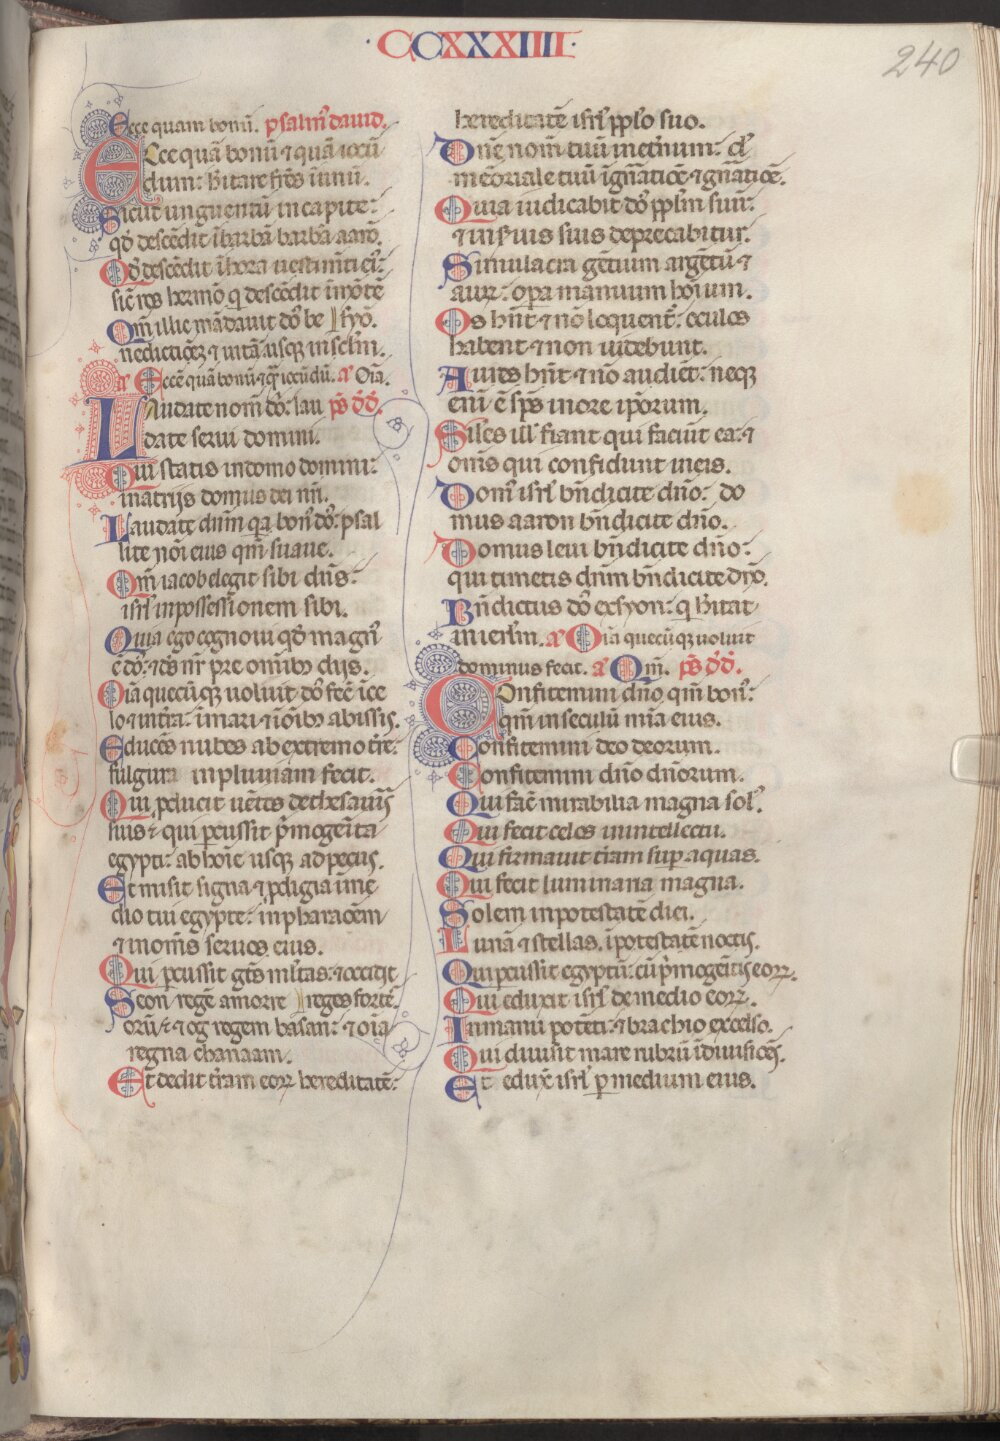 ·CCXXXIIII·
240
Ecce quam bonū. psalm᷒ dauid.
Ecce quā bonū ⁊ quā iocū
dum: hītare frēs ī unū.
Sicut unguentū in capite:
qđ descēdit ī barbā barbā aarō.
Qđ descēdit ī hora uestimēti ei᷒:
sic̄ ros hermō q̄ descēdit ī mōte
Qm̄ illic mādauit dō be syō.
nedictiōeꝫ ⁊ uitā usqꝫ in sclm̄.
a Ecce quā bonū ⁊ q̄ iocūdū. a Oīa.
Laudate nom̄ dō: lau ps̄ dđ.
date serui domini.
Qui statis in domo domini:
in atrijs domus dei nr̄i.
Laudate dnm̄ qꝛ bon᷒ dō: psal
lite noī eius qm̄ suaue.
Qm̄ iacob elegit sibi dn̄s:
isrl̄ in possessionem sibi.
Quia ego cognoui qđ magn᷒
ē dō: ⁊ ds̄ nr̄ pre omībꝰ dijs.
Oīa quecūqꝫ uoluit dō fec̄ ī ce
lo ⁊ in tr̄a: ī mari ⁊ ī oībꝰ abissis.
Educēs nubes ab extremo tr̄e:
fulgura in pluuiam fecit.
Qui ꝓducit uētos de thesauris
suis: qui ꝑcussit p̄mogēita
egypti: ab hoīe usqꝫ ad pecus.
Et misit signa ⁊ ꝓdigia ī me
dio tui egypte: in pharaoem̄
⁊ in om̄s seruos eius.
Qui ꝑcussit gēs ml̄tas: ⁊ occidit
Seon regē amorre reges fortes.
orū: ⁊ og regem basan: ⁊ oīa
regna chanaam.
Et dedit tr̄am eoꝝ hereditatē:
hereditatē isrl̄ ppl̄o suo.
Dn̄e nom̄ tuū in et̄num: dn̄e
mēoriale tuū ī gn̄atioē ⁊ gn̄atioē.
Quia iudicabit dō ppl̄m suū:
⁊ in s̄uis suis deprecabitur.
Simulacra gētium argētū ⁊
auꝝ: oꝑa manuum hoīum.
Os hn̄t ⁊ nō loquent᷒: oculos
habent ⁊ non uidebunt.
Aures hn̄t ⁊ nō audiēt: neqꝫ
enī ē sp̄s in ore ip̄orum.
Siles ill᷒ fiant qui faciūt ea: ⁊
om̄s qui confidunt in eis.
Dom᷒ isrl̄ bn̄dicite dn̄o: do
mus aaron bn̄dicite dn̄o.
Domus leui bn̄dicite dn̄o:
qui timetis dnm̄ bn̄dicite dn̄o.
Bn̄dictus dō ex syon: q̄ hītat
in ierl̄m. a Oīa quecūqꝫ uoluit
dominus fecit. a Qm̄. ps̄ dđ.
Confitemini dn̄o qm̄ bon᷒:
qm̄ in seculū mīa eius.
Confitemini deo deorum.
Confitemini dn̄o dn̄orum.
Qui fac̄ mirabilia magna sol᷒.
Qui fecit celos in intellectu.
Qui firmauit tr̄am suꝑ aquas.
Qui fecit luminaria magna.
Solem in potestatē diei.
Lunā ⁊ stellas. ī potestatē noctis.
Qui ꝑcussit egyptū: cū p̄mogēitis eoꝝ.
Qui eduxit isrl̄ de medio eoꝝ.
In manu potēti: ⁊ brachio excelso.
Qui diuisit mare rubrū ī diuisiōes.
Et eduxit isrl̄ ꝑ medium eius.